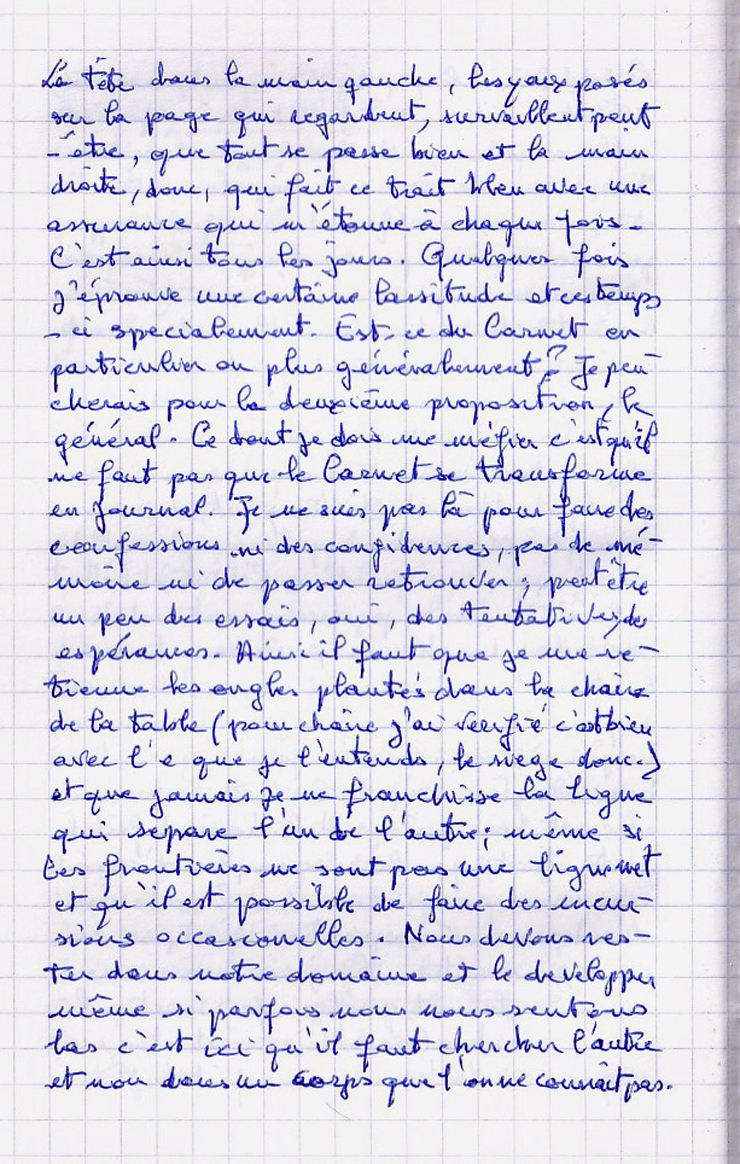 La tête dans la main gauche, les yeux posés
sur la page qui regardent, surveillent peut
-être, que tout se passe bien et la main
droite, donc, qui fait ce trait bleu avec une
assurance qui m'étonne à chaque fois.
C'est ainsi tous les jours. Quelques fois
j'éprouve une certaine lassitude et ces temps
-ci specialement. Est-ce du Carnet en
particulier ou plus généralement? Je pen-
cherais pour la deuxième proposition, le
général. Ce dont je dois me méfier c'est qu'il
ne faut pas que le Carnet se transforme
en Journal. Je ne suis pas là pour faire des
confessions ni des confidences, pas de mé-
moire ni de passer retrouver; peut être
un peu des essais, oui, des tentatives, des
espérances. Ainsi il faut que je me re-
tienne les ongles plantés dans la chaire
de la table (pour chaire j'ai verifié c'est bien
avec l'e que je l'entends, le siege donc.)
et que jamais je ne franchisse la ligne
qui sépare l'un de l'autre; même si
les frontières ne sont pas une ligne net
et qu'il est possible de faire des incur-
sions occasionelles. Nous devons res-
ter dans notre domaine et le developper
même si parfois nous nous sentons
las c'est ici qu'il faut chercher l'autre
et non dans un corps que l'on ne connait pas.